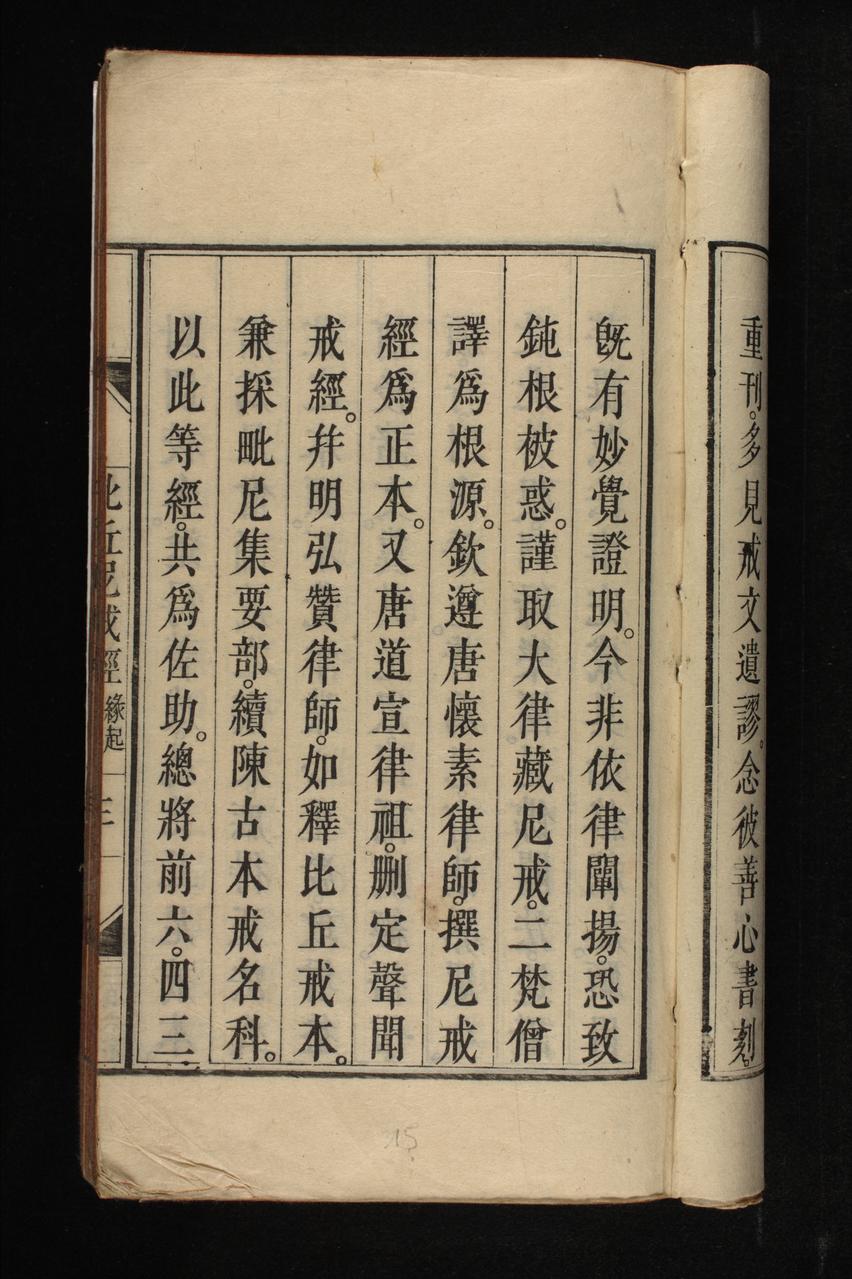 重刊。多見戒文遺謬。念彼善心書刻。
旣有妙覺證明。今非依律闡揚。恐致
鈍根被惑。謹取大律藏尼戒。二梵僧
譯爲根源。欽遵唐懷素律師。撰尼戒
經爲正本。又唐道宣律祖。删定聲聞
戒經。幷明弘贊律師。如釋比丘戒本。
兼採毗尼集要部。續陳古本戒名科。
以此等經。共爲佐助。總將前六。四三
比丘尼戒經 緣起 三
15